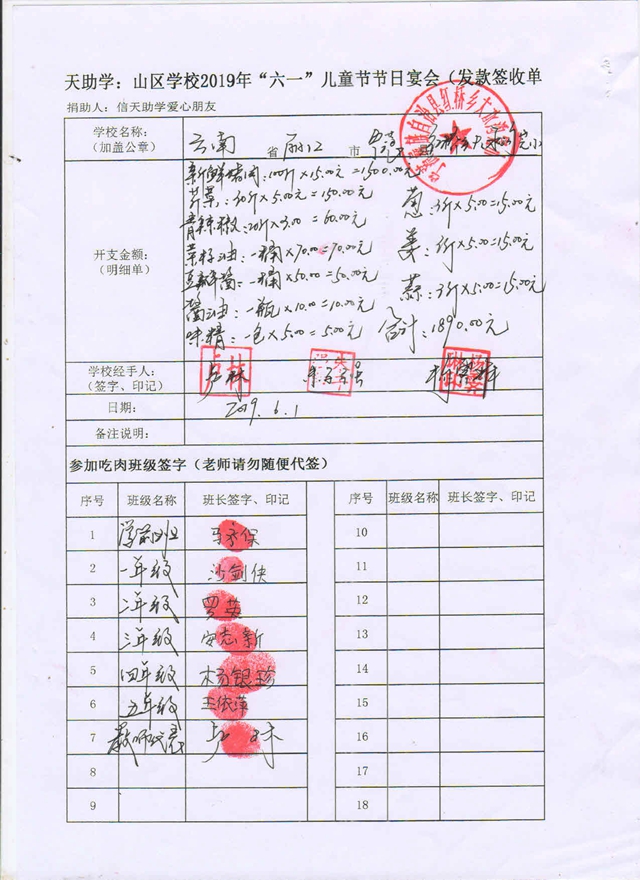 天助学：山区学校2019年“六一”儿童节节日宴会（发款签收单
捐助人：信天助学爱心朋友
学校名称：
（加盖公章）
云南 省 丽江 市
开支金额：
（明细单）
新鲜猪肉：100斤×15.00元=1500.00元
芹菜：30斤×5.00元=150.00元
青辣椒：20斤×3.00=60.00元
菜籽油：一桶×70.00=70.00元
豆瓣酱：一桶×50.00=50.00元
酱油：一瓶×10.00=10.00元
味精：一包×5.00=5.00元
葱：3斤×5.00=15.00元
姜：3斤×5.00=15.00元
蒜：3斤×5.00=15.00元
合计：1890.00元
学校经手人：
（签字、印记）
卢林
日期：
2019.6.1
备注说明：
参加吃肉班级签字（老师请勿随便代签）
序号 班级名称 班长签字、印记 序号 班级名称 班长签字、印记
1 学前班 马永保 10
2 一年级 沙剑侠 11
3 二年级 罗英 12
4 三年级 安志新 13
5 四年级 杨银珍 14
6 五年级 王依萍 15
7 教师代表 卢林 16
8 17
9 18